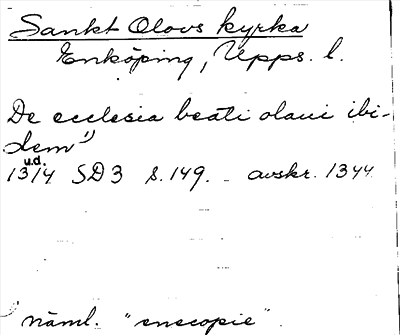 Sankt Olovs kyrka
Enköping, Upps. l.
De ecclesia beati olaui ibi-
dem 1)
u.d.
1314 SD3 s. 149. - avskr. 1344
1) näml. "enecopie".